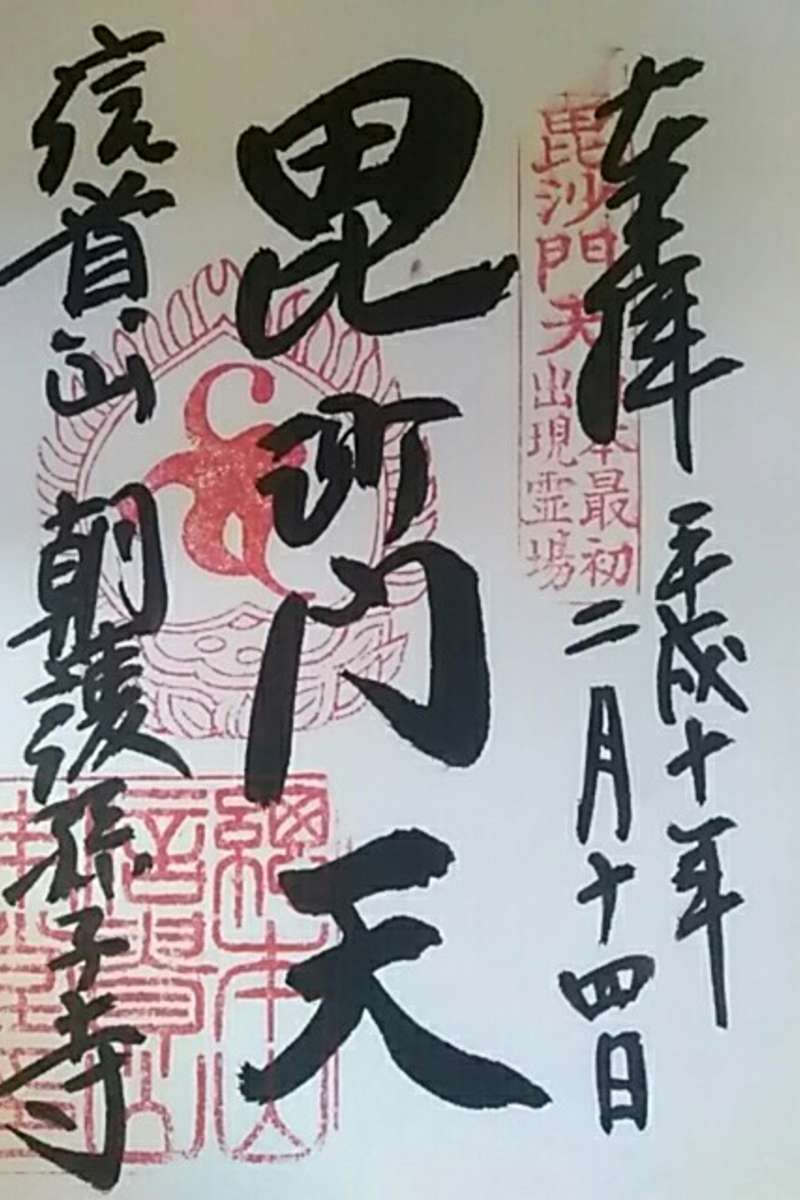 奉拝
平成十年
二月十四日
毘沙門天
日本最初
出現霊場
毘沙門天
信貴山
朝護孫子寺
總本山
信貴山